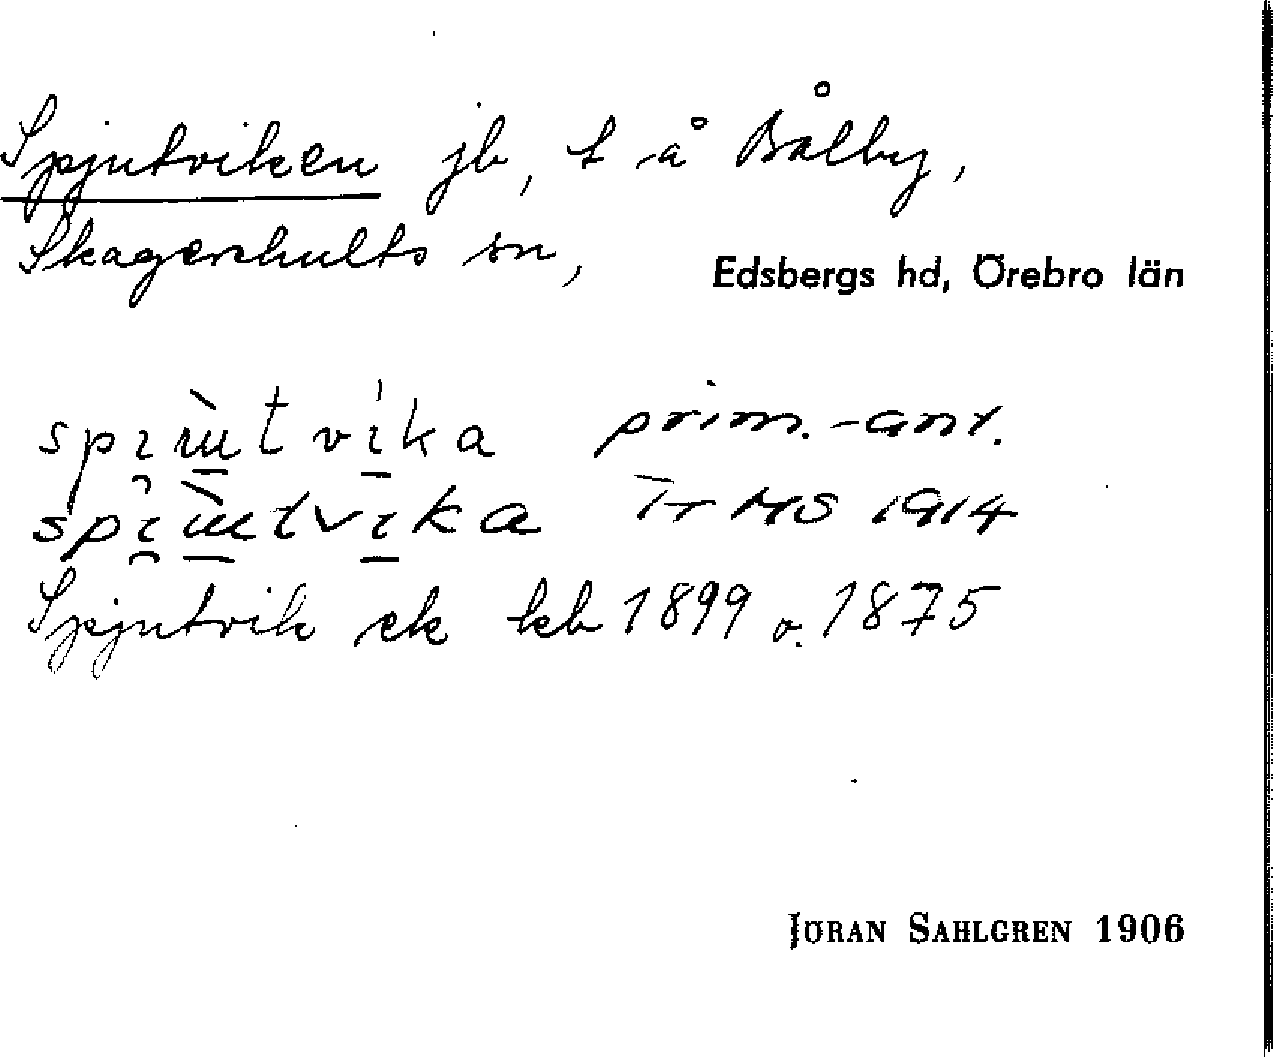 Spjutviken jb, t å Bålby,
Skagershults sn,
Edsbergs hd, Örebro län
prim.-ant.
MS 1914
Spjutvik ek kb 1899 o. 1875
JÖRAN SAHLGREN 1906